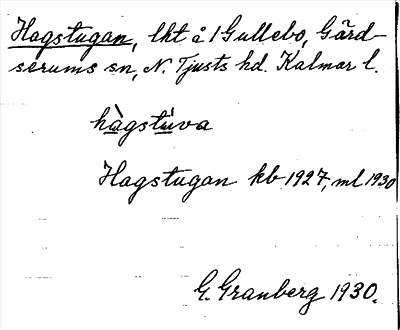 Hagstugan, lht å 1 Gullebo, Gärd-
serums sn, N. Tjusts hd. Kalmar l.
hàgstùva
Hagstugan kb 1927, ml 1930
G. Granberg 1930.